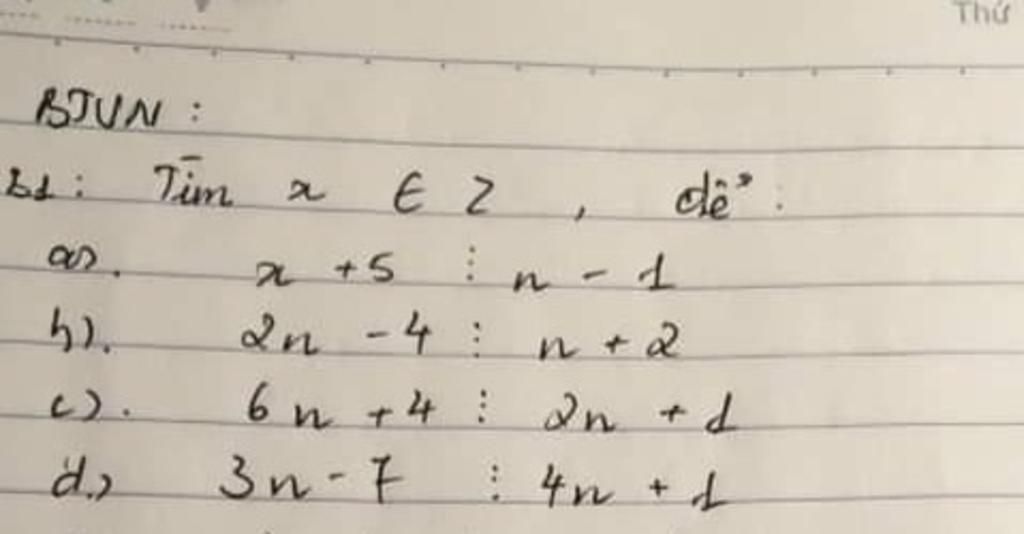 Thứ
BTVN :
B1 : Tìm x ∈ Z , để :
a). x + 5 ⋮ n - 1
b). 2n - 4 ⋮ n + 2
c). 6n + 4 ⋮ 2n + 1
d.) 3n - 7 ⋮ 4n + 1